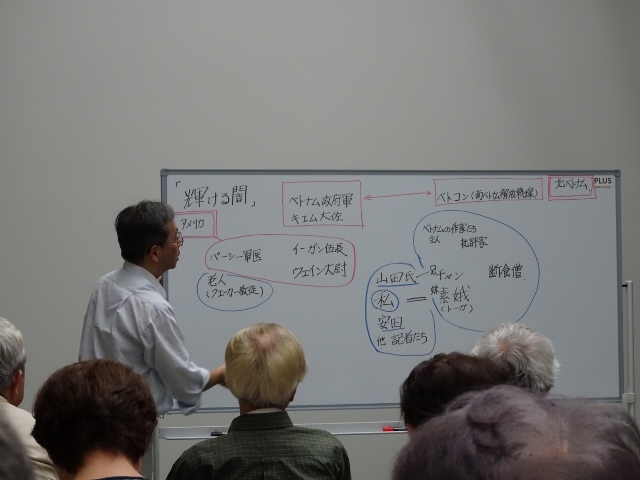 「輝ける闇」
アメリカ
ベトナム政府軍
キェム大佐
ベトコン(南ベトナム解放戦線)
北ベトナム
PLUS
パーシー軍医
イーガン伍長
ウェイン大尉
老人
(クエーカー教徒)
ベトナムの作家たち
批評家
山田氏
兄チャン
断食僧
私
妹素娥
(トーガ)
安田
他 記者たち